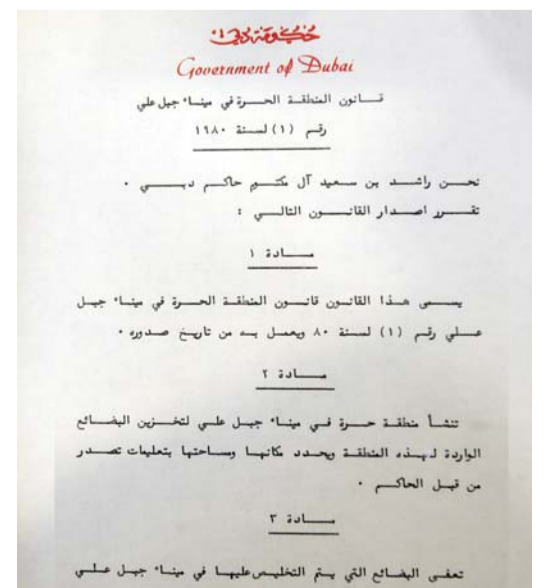 حكومة دبي
Government of Dubai
قانون المنطقة الحرة في ميناء جبل علي
رقم (١) لسنة ١٩٨٠
نحن راشد بن سعيد آل مكتوم حاكم دبي .
تقرر اصدار القانون التالي :
مادة ١
يسمى هذا القانون قانون المنطقة الحرة في ميناء جبل
علي رقم (١) لسنة ٨٠ ويعمل به من تاريخ صدوره .
مادة ٢
تنشأ منطقة حرة في ميناء جبل علي لتخزين البضائع
الواردة لهذه المنطقة ويحدد مكانها ومساحتها بتعليمات تصدر
من قبل الحاكم .
مادة ٣
تعفى البضائع التي يتم التخليص عليها في ميناء جبل علي